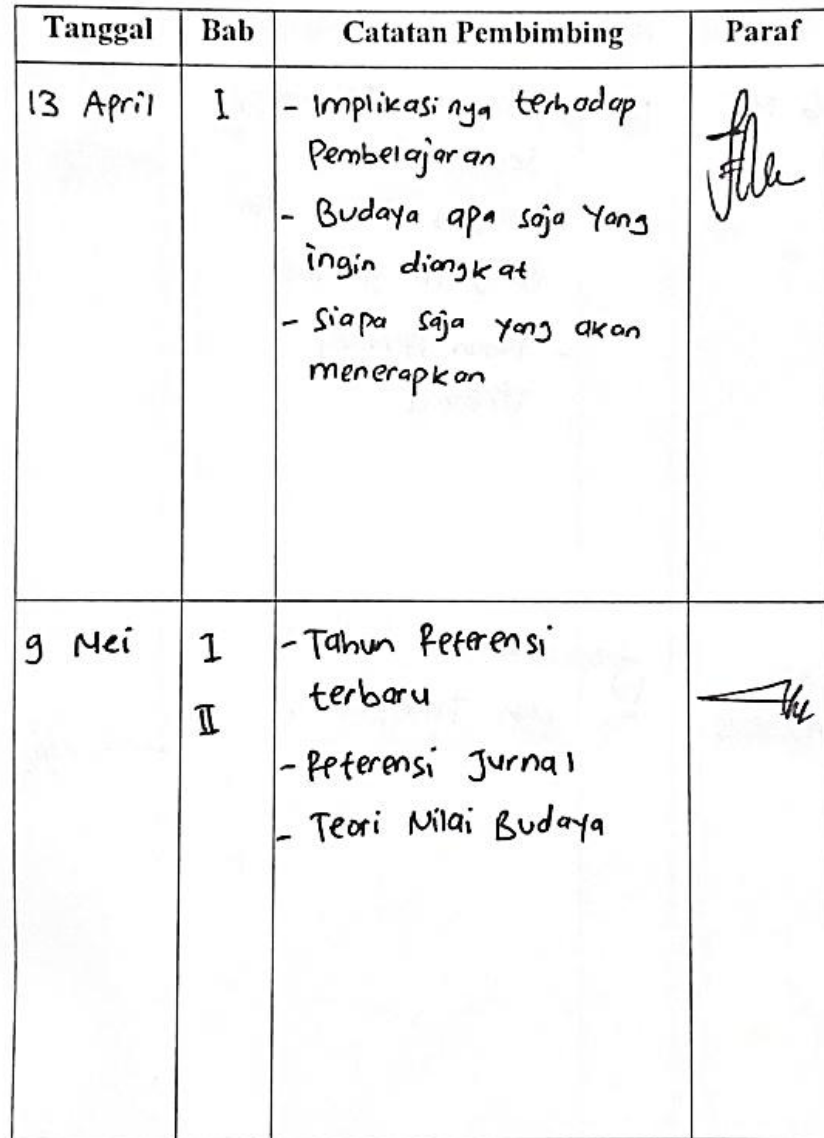 Tanggal Bab Catatan Pembimbing Paraf
13 April I - Implikasinya terhadap
Pembelajaran
- Budaya apa saja yang
ingin diangkat
- Siapa saja yang akan
menerapkan
9 Mei I - Tahun Referensi
terbaru
II
- Referensi Jurnal
- Teori Nilai Budaya